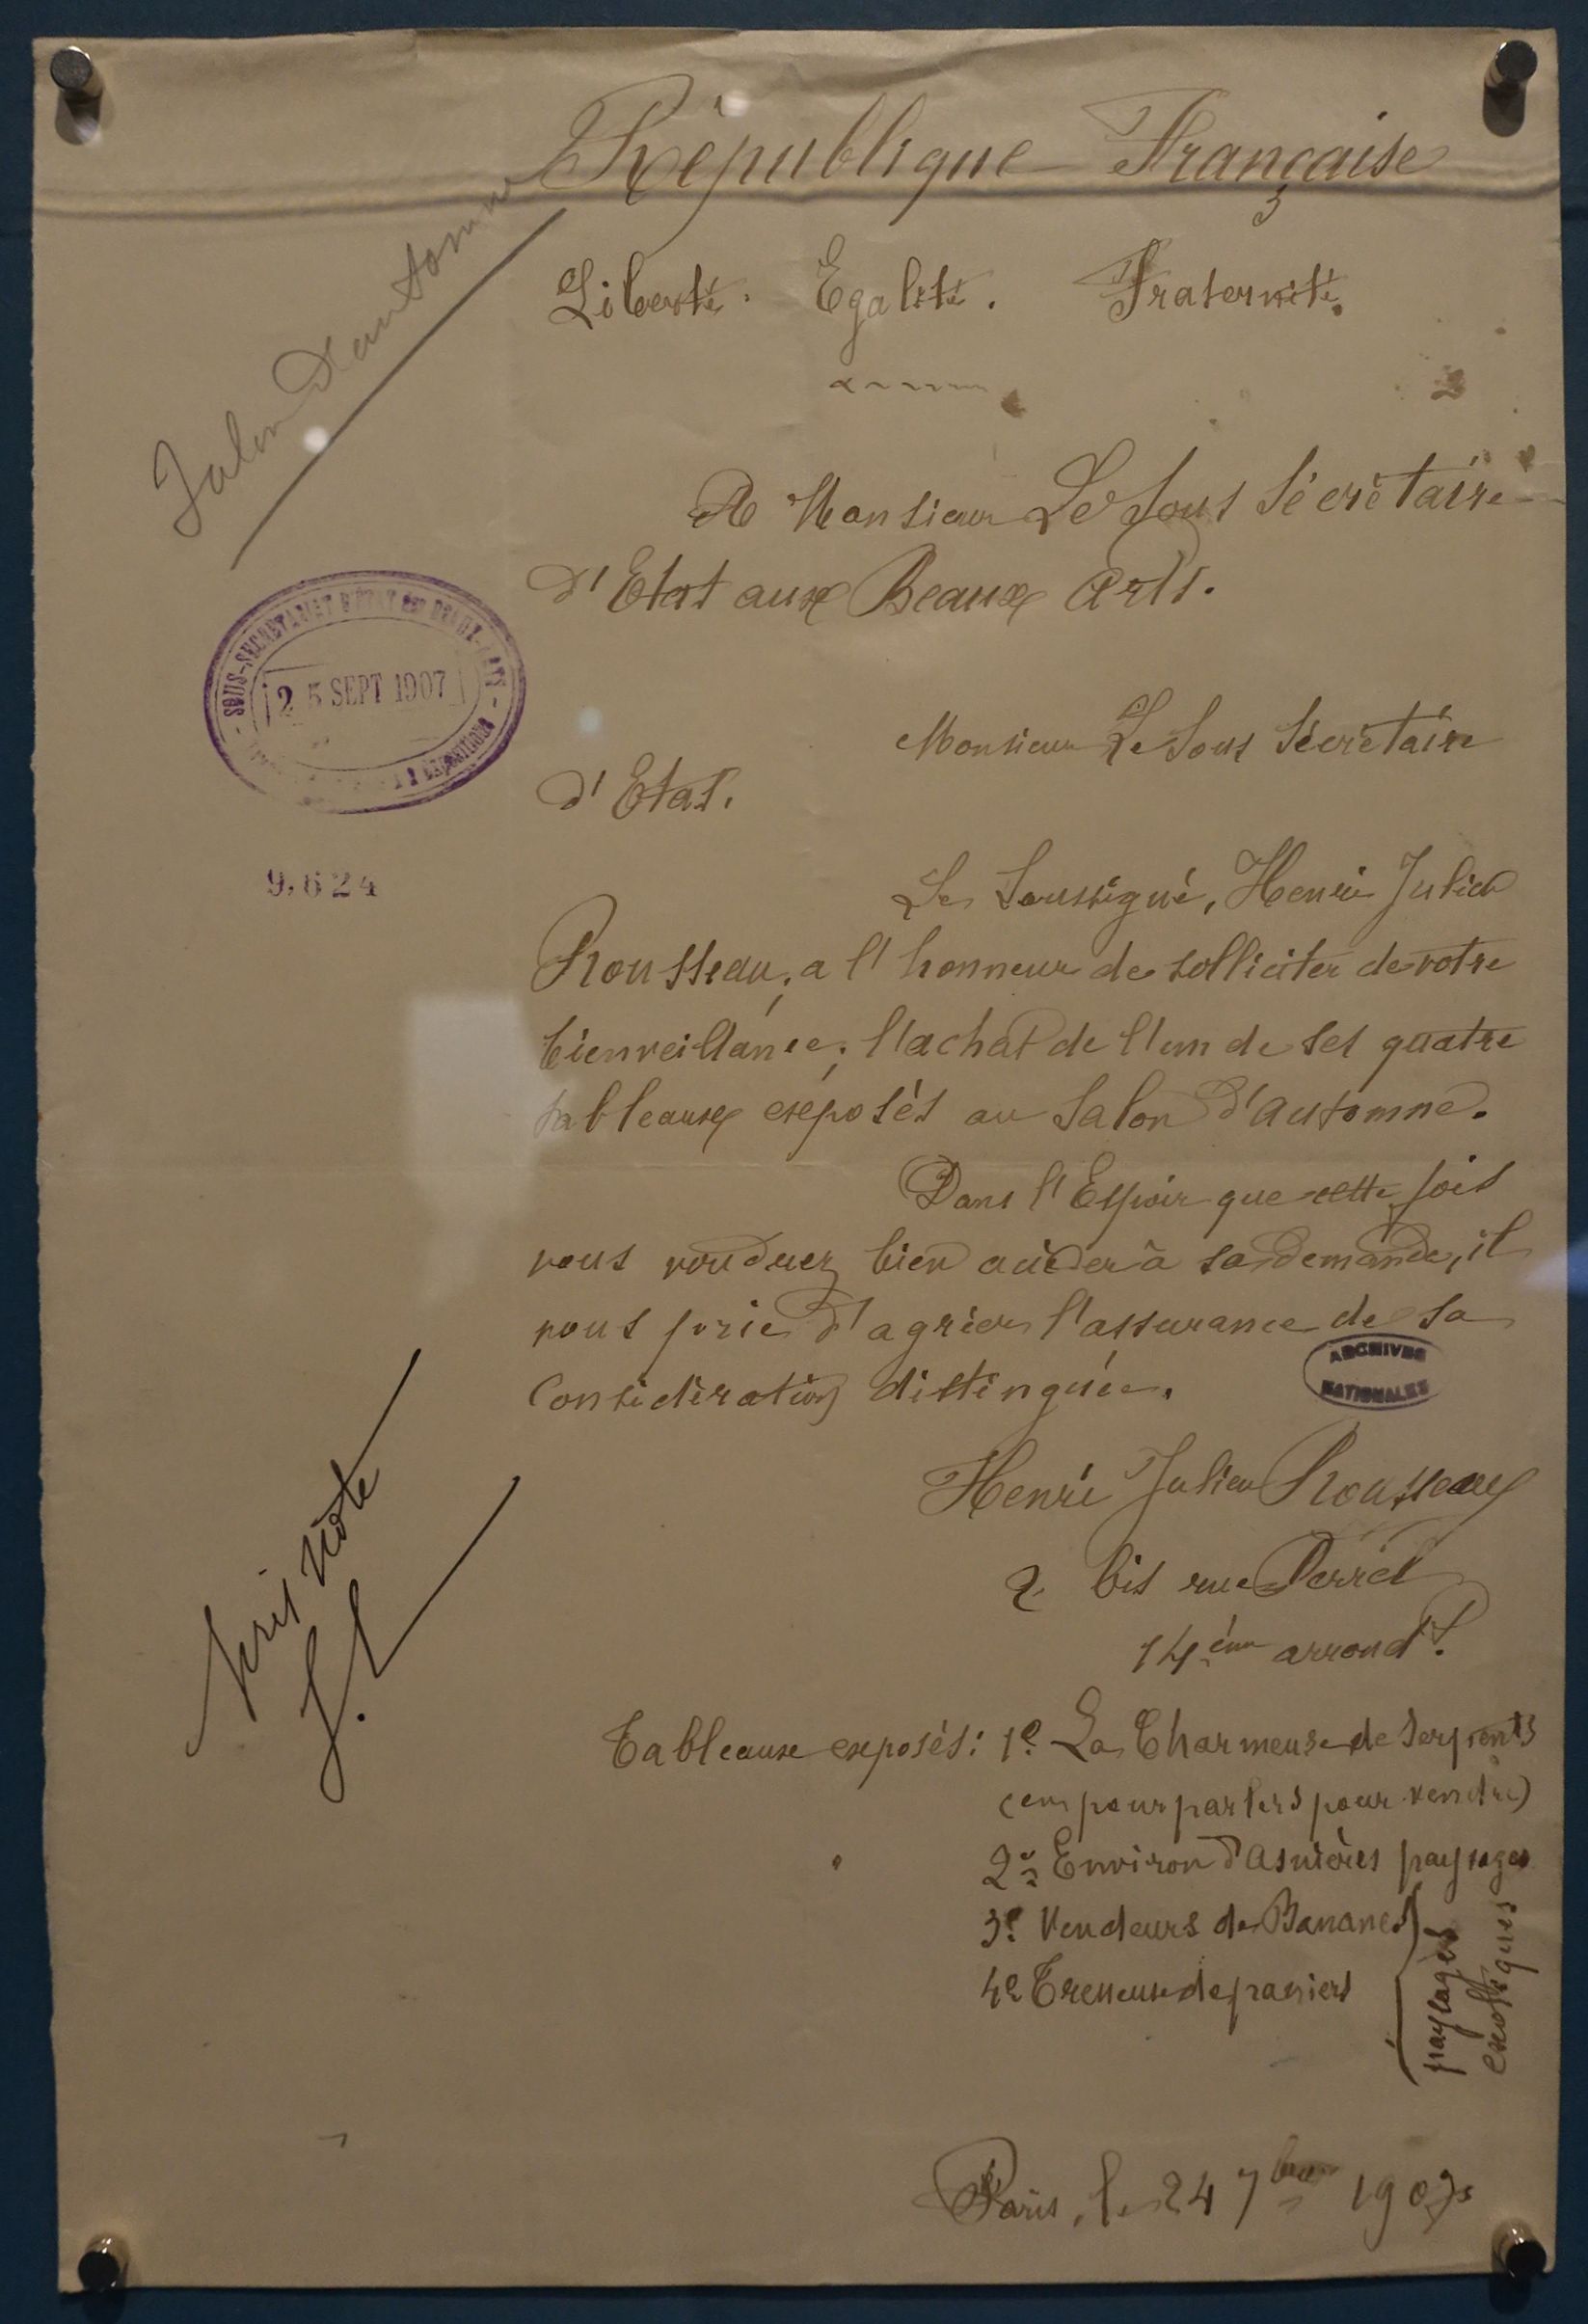 République Française
Liberté. Egalité. Fraternité.
Salon d'automne
A Monsieur Le Sous Sécrètaire
d'Etat aux Beaux Arts.
SOUS-SECRETARIAT D'ETAT DES BEAUX-ARTS
25 SEPT 1907
EXPOSITIONS
9.624
Monsieur Le Sous Sécrètaire
d'Etat.
Le Soussigné, Henri Julien
Rousseau, a l'honneur de solliciter de votre
bienveillance, l'achat de l'un de ses quatre
tableaux exposés au Salon d'automne.
Dans l'Espoir que cette fois
vous voudrez bien accéder à sa demande, il
vous prie d'agréer l'assurance de sa
Considération distinguée.
ARCHIVES
NATIONALES
Henri Julien Rousseau
2 bis rue Perrel
14ème arrondt.
pris note
Tableaux exposés: 1e La Charmeuse de Serpents
(en pourparlers pour vendre)
2e Environ d'Asnières paysages
3e Vendeurs de Bananes
4e Tresseuse de paniers
paysages
exotiques
Paris, le 24 7bre 1907